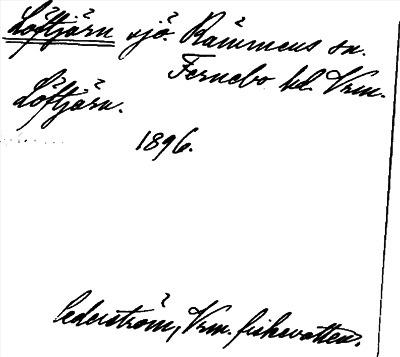 Löftjärn sjö. Rämmens sn.
Fernebo hd. Vrm.
Löftjärn.
1896.
Cederström, Vrm. fiskevatten.